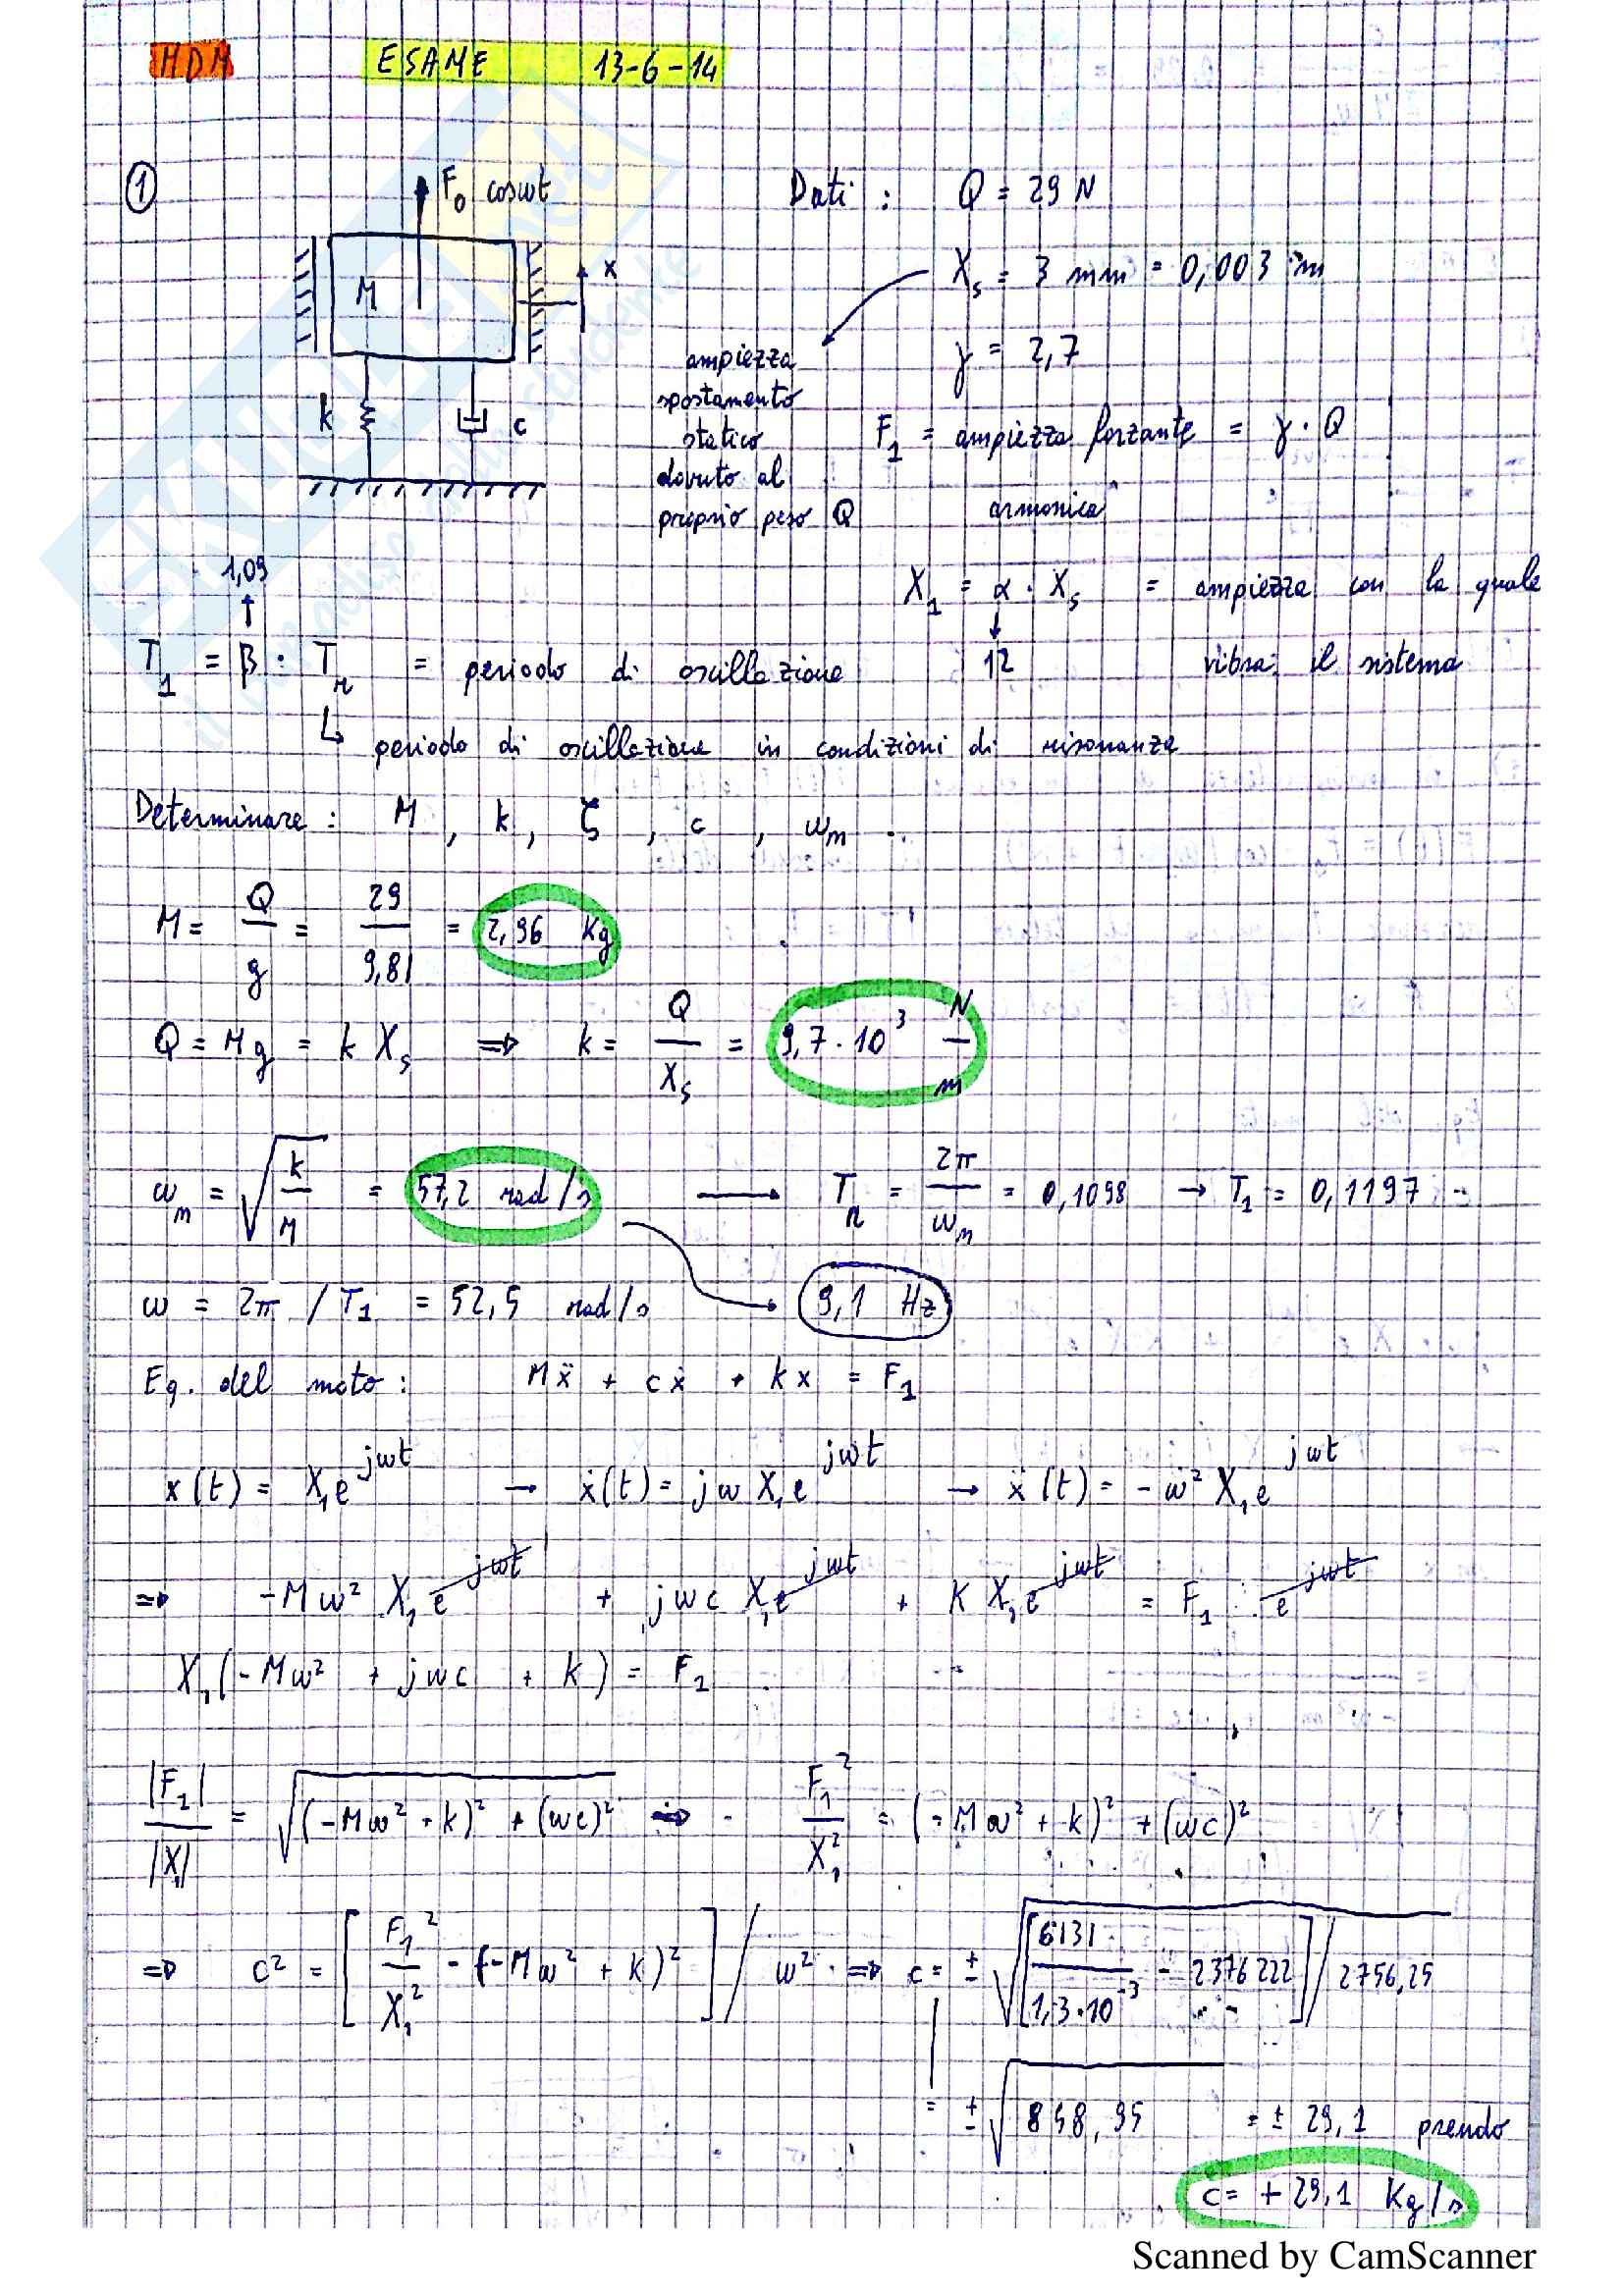 MDM ESAME 13-6-14
① F₀ cosωt Dati : Q = 29 N
x
M
Xₛ = 3 mm = 0,003 m
γ = 2,7
ampiezza
spostamento
statico
dovuto al
proprio peso Q
k c
F₁ = ampiezza forzante = γ · Q
armonica
1,09
X₁ = α · Xₛ = ampiezza con la quale
12 vibra il sistema
T₁ = β · Tₙ = periodo di oscillazione
↳ periodo di oscillazione in condizioni di risonanza
Determinare : M , k , ζ , c , ωₙ
M = Q/g = 29/9,81 = 2,96 Kg
Q = Mg = k Xₛ ⇒ k = Q/Xₛ = 9,7 · 10³ N/m
ωₙ = √(k/M) = 57,2 rad/s → Tₙ = 2π/ωₙ = 0,1098 → T₁ = 0,1197
ω = 2π / T₁ = 52,5 rad/s → 9,1 Hz
Eq. del moto : Mẍ + cẋ + kx = F₁
x(t) = X₁e^jωt → ẋ(t) = jω X₁e^jωt → ẍ(t) = -ω² X₁e^jωt
⇒ -Mω² X₁e^jωt + jωc X₁e^jωt + K X₁e^jωt = F₁ · e^jωt
X₁(-Mω² + jωc + k) = F₁
|F₁|/|X₁| = √((-Mω² + k)² + (ωc)²) ⇒ F₁²/X₁² = (-Mω² + k)² + (ωc)²
⇒ c² = [F₁²/X₁² - (-Mω² + k)²] / ω² ⇒ c = ± √([6131/1,3·10⁻³ - 2376222] / 2756,25)
= ± √848,95 = ± 29,1 prendo
c = + 29,1 Kg/s
Scanned by CamScanner